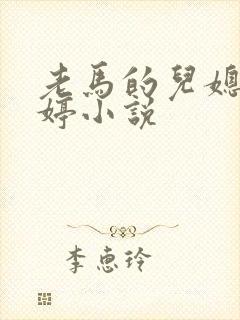 老馬的兒媳
婷小說
李惠玲